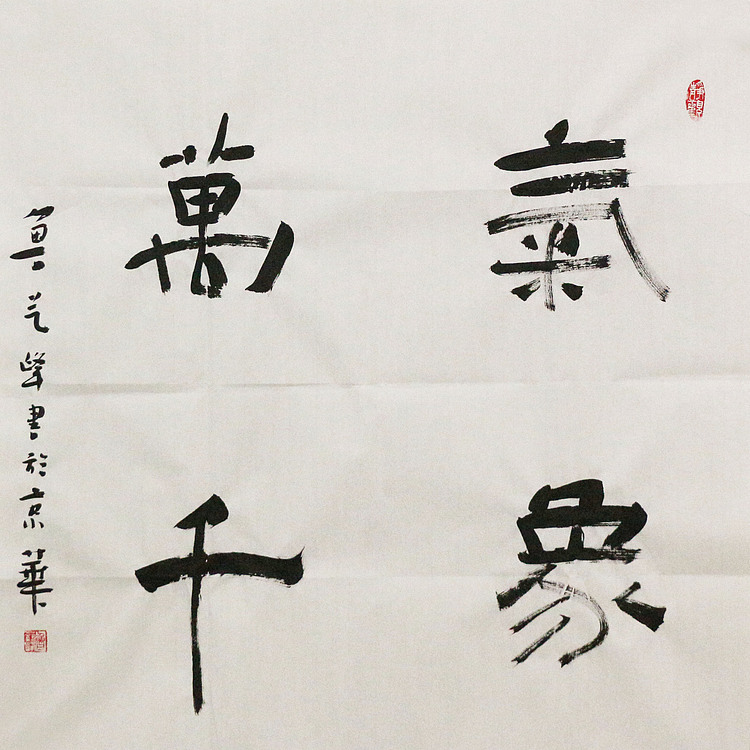 靜觀
氣象
萬千
峰書於京華